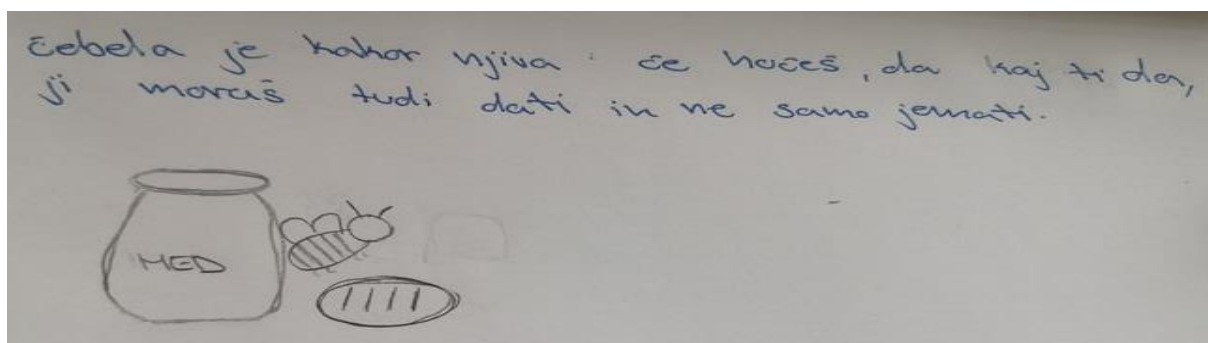 čebela je kakor njiva: če hočeš, da kaj ti da,
ji moraš tudi dati in ne samo jemati.
MED